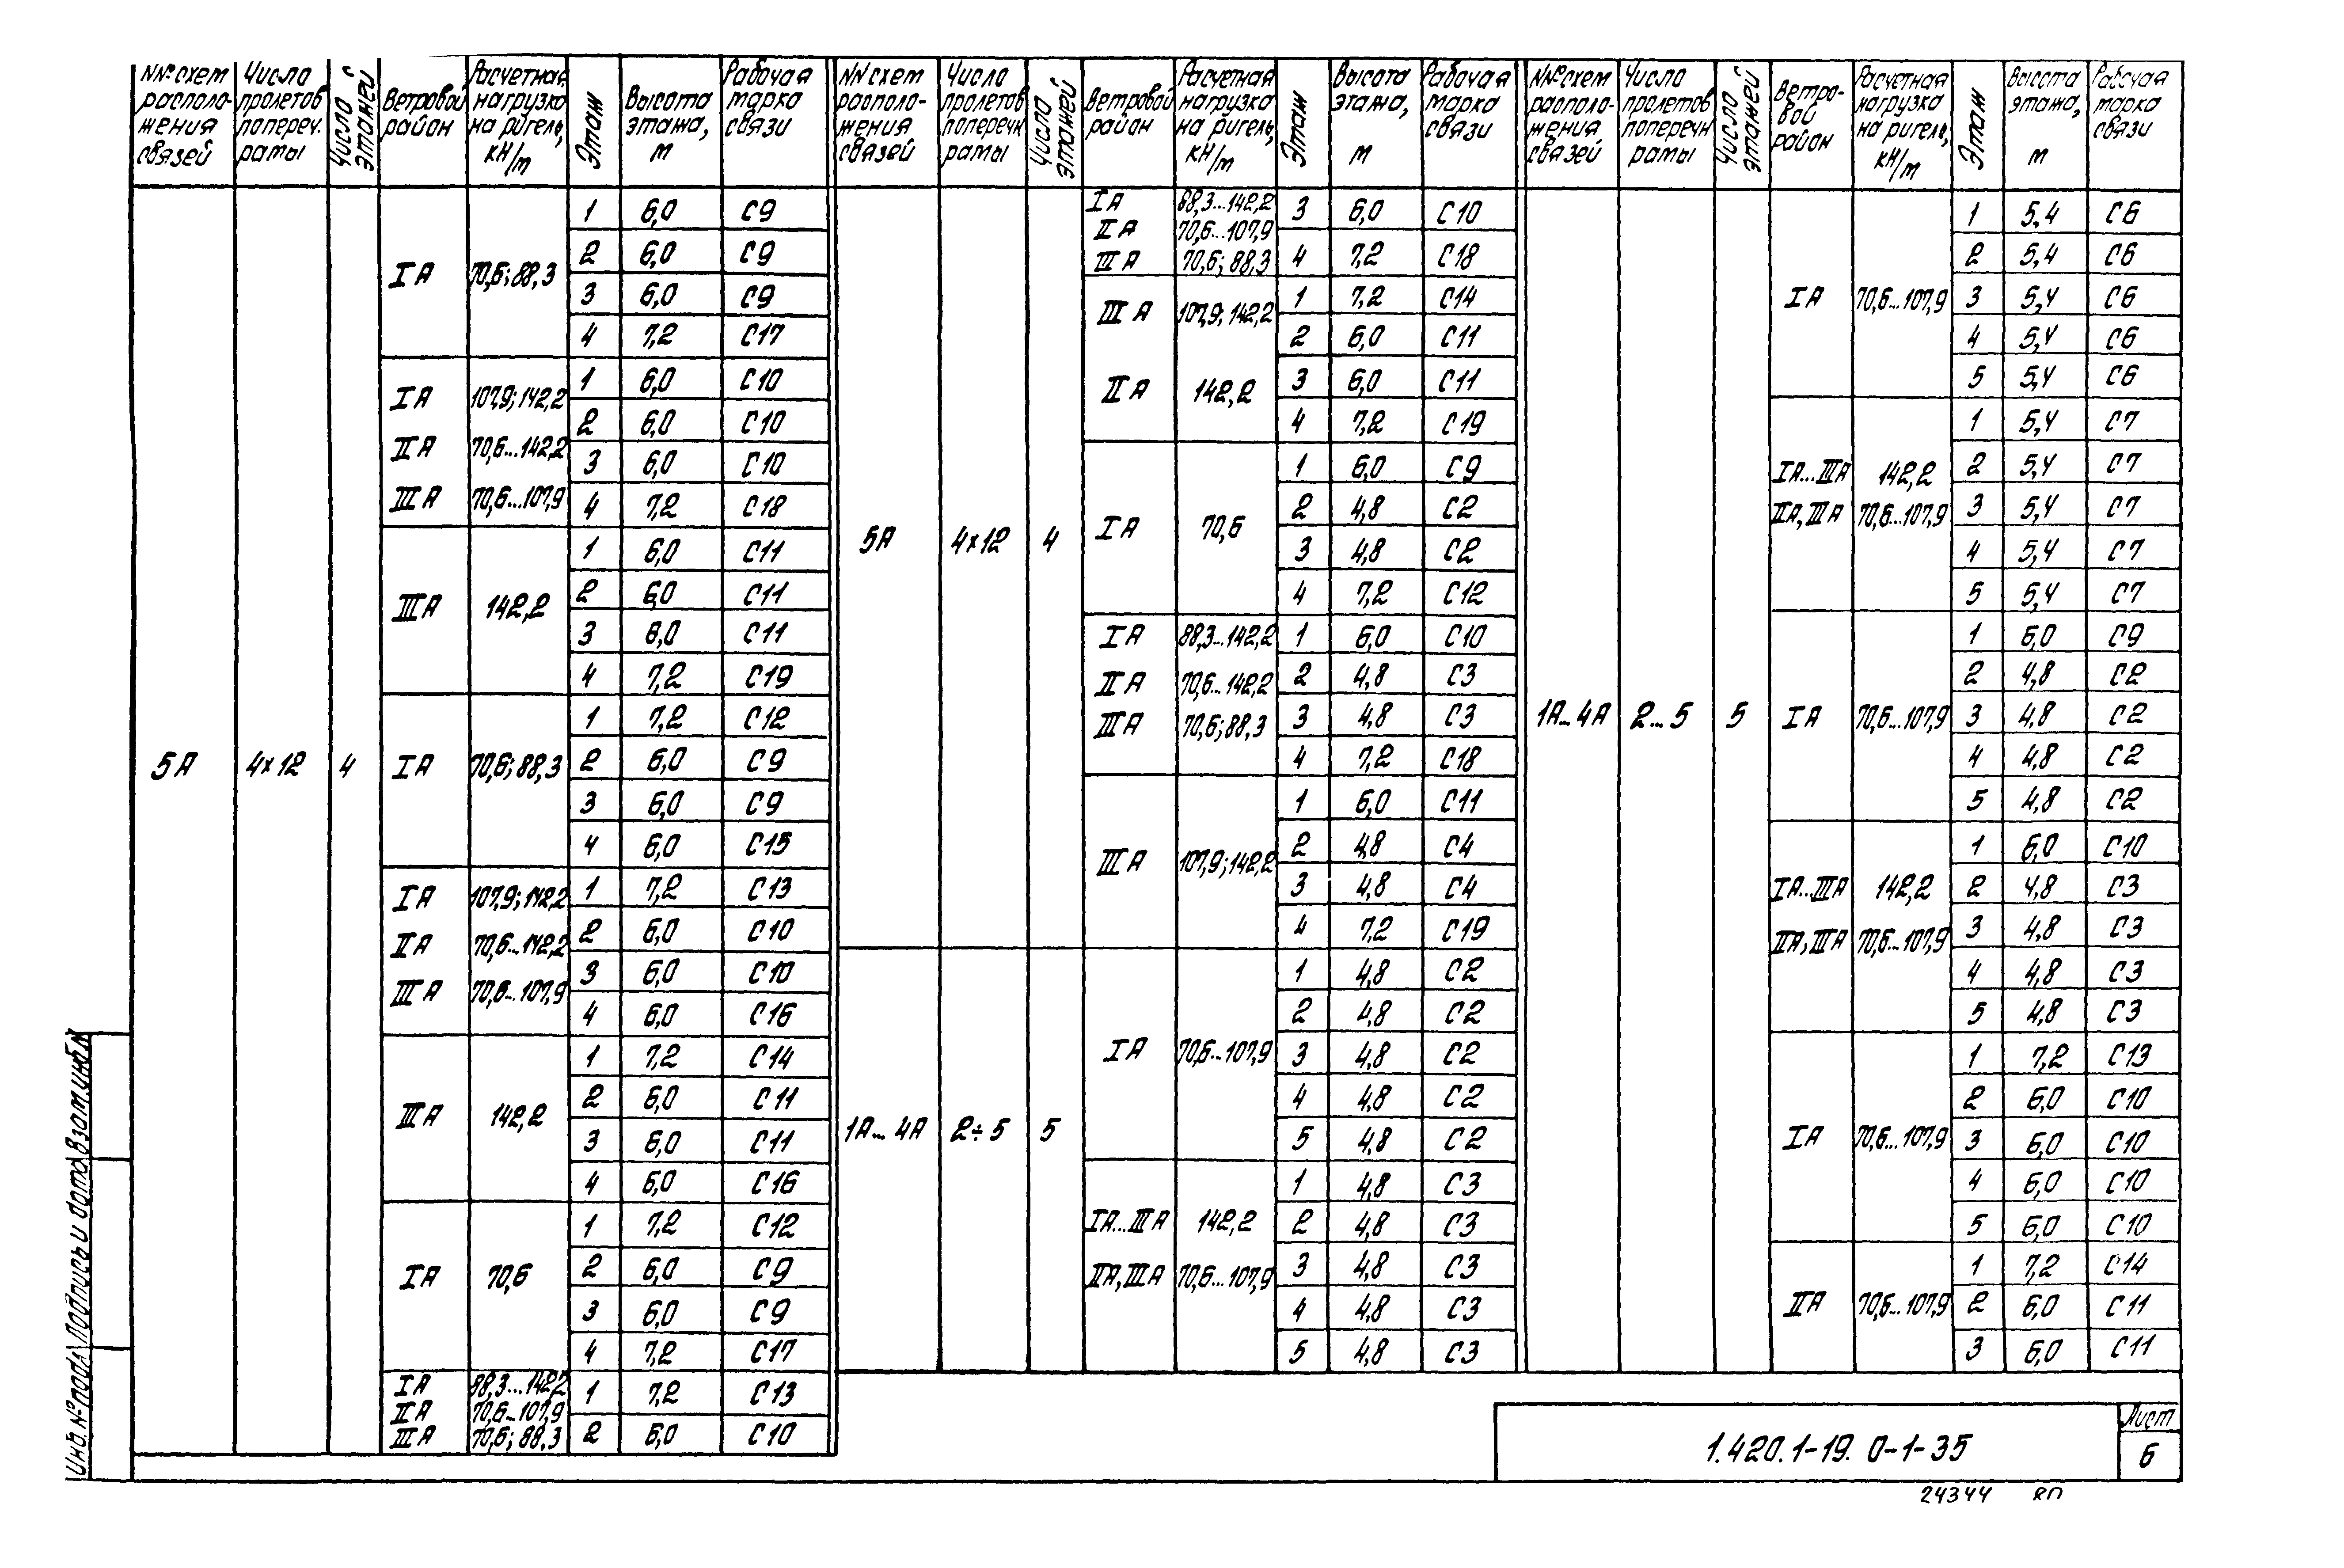 NNº схем расположения связей | Число пролетов попереч. рамы | Число этажей | Ветровой район | Расчетная нагрузка на ригель, кН/м | Этаж | Высота этажа, м | Рабочая марка связи
5А | 4×12 | 4
IА | 70,6; 88,3
1 | 6,0 | С9
2 | 6,0 | С9
3 | 6,0 | С9
4 | 7,2 | С17
IА | 107,9; 142,2
IIА | 70,6...142,2
IIIА | 70,6...107,9
1 | 6,0 | С10
2 | 6,0 | С10
3 | 6,0 | С10
4 | 7,2 | С18
IIIА | 142,2
1 | 6,0 | С11
2 | 6,0 | С11
3 | 6,0 | С11
4 | 7,2 | С19
IА | 70,6; 88,3
1 | 7,2 | С12
2 | 6,0 | С9
3 | 6,0 | С9
4 | 6,0 | С15
IА | 107,9; 142,2
IIА | 70,6...142,2
IIIА | 70,6...107,9
1 | 7,2 | С13
2 | 6,0 | С10
3 | 6,0 | С10
4 | 6,0 | С16
IIIА | 142,2
1 | 7,2 | С14
2 | 6,0 | С11
3 | 6,0 | С11
4 | 6,0 | С16
IА | 70,6
1 | 7,2 | С12
2 | 6,0 | С9
3 | 6,0 | С9
4 | 7,2 | С17
IА | 88,3...142,2
IIА | 70,6...107,9
IIIА | 70,6; 88,3
1 | 7,2 | С13
2 | 6,0 | С10
NN схем расположения связей | Число пролетов поперечн рамы | Число этажей | Ветровой район | Расчетная нагрузка на ригель, кН/м | Этаж | Высота этажа, м | Рабочая марка связи
5А | 4×12 | 4
IА | 88,3...142,2
IIА | 70,6...107,9
IIIА | 70,6; 88,3
3 | 6,0 | С10
4 | 7,2 | С18
IIIА | 107,9; 142,2
IIА | 142,2
1 | 7,2 | С14
2 | 6,0 | С11
3 | 6,0 | С11
4 | 7,2 | С19
IА | 70,6
1 | 6,0 | С9
2 | 4,8 | С2
3 | 4,8 | С2
4 | 7,2 | С12
IА | 88,3...142,2
IIА | 70,6...142,2
IIIА | 70,6; 88,3
1 | 6,0 | С10
2 | 4,8 | С3
3 | 4,8 | С3
4 | 7,2 | С18
IIIА | 107,9; 142,2
1 | 6,0 | С11
2 | 4,8 | С4
3 | 4,8 | С4
4 | 7,2 | С19
1А... 4А | 2÷5 | 5
IА | 70,6...107,9
1 | 4,8 | С2
2 | 4,8 | С2
3 | 4,8 | С2
4 | 4,8 | С2
5 | 4,8 | С2
IА...IIIА | 142,2
IIА, IIIА | 70,6...107,9
1 | 4,8 | С3
2 | 4,8 | С3
3 | 4,8 | С3
4 | 4,8 | С3
5 | 4,8 | С3
NNº схем расположения связей | Число пролетов поперечн рамы | Число этажей | Ветровой район | Расчетная нагрузка на ригель, кН/м | Этаж | Высота этажа, м | Рабочая марка связи
1А... 4А | 2... 5 | 5
IА | 70,6...107,9
1 | 5,4 | С6
2 | 5,4 | С6
3 | 5,4 | С6
4 | 5,4 | С6
5 | 5,4 | С6
IА...IIIА | 142,2
IIА, IIIА | 70,6...107,9
1 | 5,4 | С7
2 | 5,4 | С7
3 | 5,4 | С7
4 | 5,4 | С7
5 | 5,4 | С7
IА | 70,6...107,9
1 | 6,0 | С9
2 | 4,8 | С2
3 | 4,8 | С2
4 | 4,8 | С2
5 | 4,8 | С2
IА...IIIА | 142,2
IIА, IIIА | 70,6...107,9
1 | 6,0 | С10
2 | 4,8 | С3
3 | 4,8 | С3
4 | 4,8 | С3
5 | 4,8 | С3
IА | 70,6...107,9
1 | 7,2 | С13
2 | 6,0 | С10
3 | 6,0 | С10
4 | 6,0 | С10
5 | 6,0 | С10
IIА | 70,6...107,9
1 | 7,2 | С14
2 | 6,0 | С11
3 | 6,0 | С11
Инв. № подл | Подпись и дата | Взам. инв. №
1.420.1-19. 0-1-35
Лист
6
24344